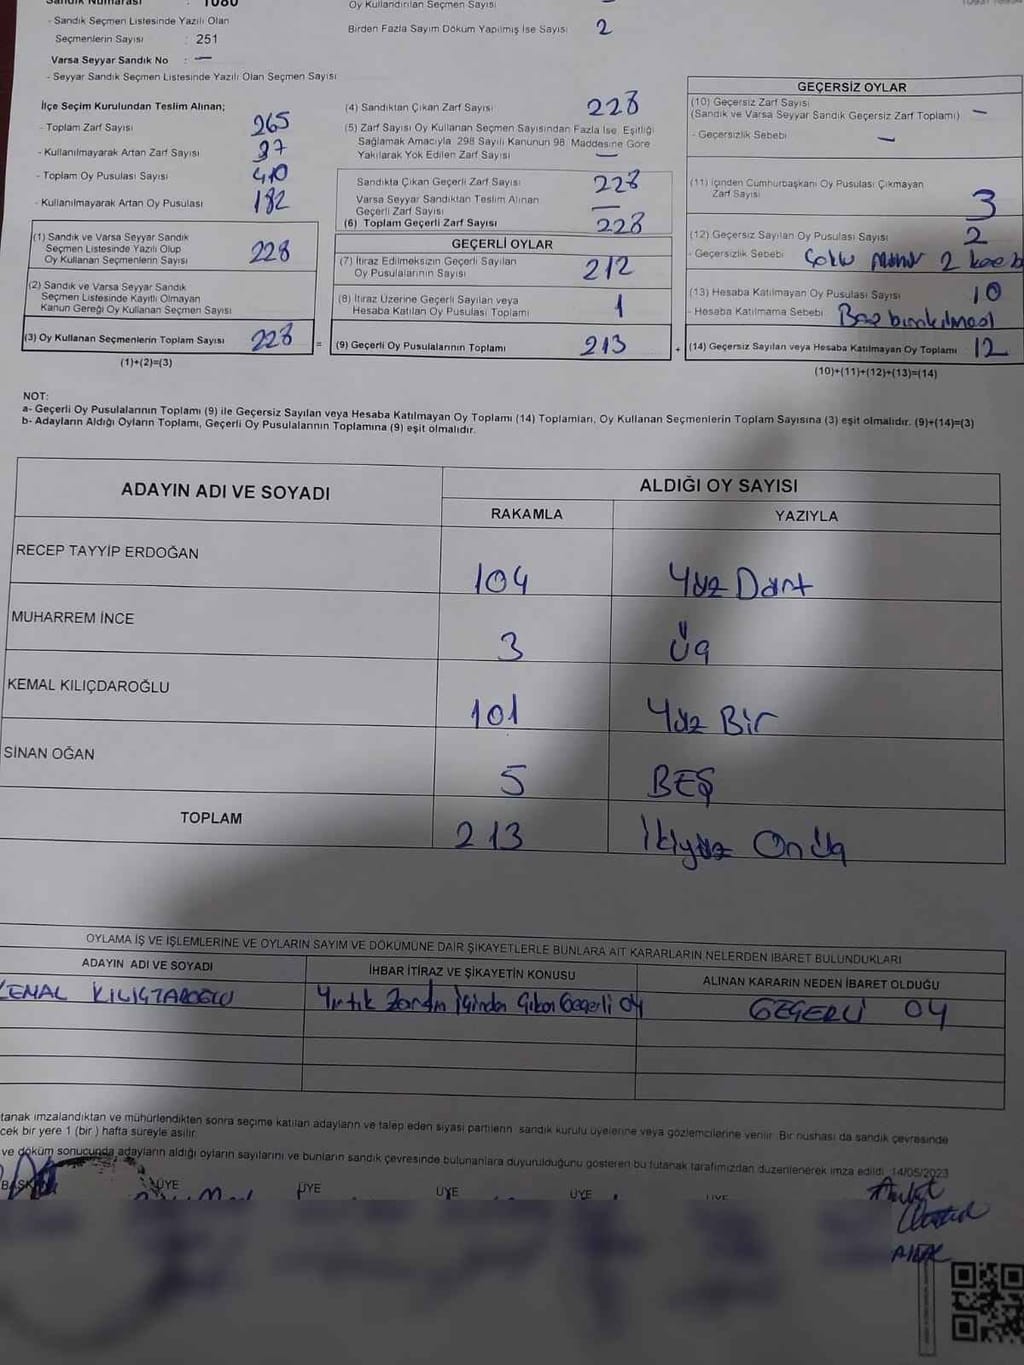 Sandık Numarası : 1080
- Sandık Seçmen Listesinde Yazılı Olan
Seçmenlerin Sayısı : 251
Varsa Seyyar Sandık No : —
- Seyyar Sandık Seçmen Listesinde Yazılı Olan Seçmen Sayısı
Oy Kullandırılan Seçmen Sayısı
Birden Fazla Sayım Döküm Yapılmış İse Sayısı 2
İlçe Seçim Kurulundan Teslim Alınan;
- Toplam Zarf Sayısı 265
- Kullanılmayarak Artan Zarf Sayısı 37
- Toplam Oy Pusulası Sayısı 410
- Kullanılmayarak Artan Oy Pusulası 182
(1) Sandık ve Varsa Seyyar Sandık
Seçmen Listesinde Yazılı Olup
Oy Kullanan Seçmenlerin Sayısı 228
(2) Sandık ve Varsa Seyyar Sandık
Seçmen Listesinde Kayıtlı Olmayan
Kanun Gereği Oy Kullanan Seçmen Sayısı
(3) Oy Kullanan Seçmenlerin Toplam Sayısı 228 =
(1)+(2)=(3)
(4) Sandıktan Çıkan Zarf Sayısı 228
(5) Zarf Sayısı Oy Kullanan Seçmen Sayısından Fazla İse, Eşitliği
Sağlamak Amacıyla 298 Sayılı Kanunun 98. Maddesine Göre
Yakılarak Yok Edilen Zarf Sayısı —
Sandıkta Çıkan Geçerli Zarf Sayısı 228
Varsa Seyyar Sandıktan Teslim Alınan
Geçerli Zarf Sayısı —
(6) Toplam Geçerli Zarf Sayısı 228
GEÇERLİ OYLAR
(7) İtiraz Edilmeksizin Geçerli Sayılan
Oy Pusulalarının Sayısı 212
(8) İtiraz Üzerine Geçerli Sayılan veya
Hesaba Katılan Oy Pusulaları Toplamı 1
(9) Geçerli Oy Pusulalarının Toplamı 213 +
GEÇERSİZ OYLAR
(10) Geçersiz Zarf Sayısı
(Sandık ve Varsa Seyyar Sandık Geçersiz Zarf Toplamı) —
- Geçersizlik Sebebi —
(11) İçinden Cumhurbaşkanı Oy Pusulası Çıkmayan
Zarf Sayısı 3
(12) Geçersiz Sayılan Oy Pusulası Sayısı 2
- Geçersizlik Sebebi Çoklu Mühür 2
(13) Hesaba Katılmayan Oy Pusulası Sayısı 10
- Hesaba Katılmama Sebebi Boş bırakılması
(14) Geçersiz Sayılan veya Hesaba Katılmayan Oy Toplamı 12
(10)+(11)+(12)+(13)=(14)
NOT:
a- Geçerli Oy Pusulalarının Toplamı (9) ile Geçersiz Sayılan veya Hesaba Katılmayan Oy Toplamı (14) Toplamları, Oy Kullanan Seçmenlerin Toplam Sayısına (3) eşit olmalıdır. (9)+(14)=(3)
b- Adayların Aldığı Oyların Toplamı, Geçerli Oy Pusulalarının Toplamına (9) eşit olmalıdır.
ADAYIN ADI VE SOYADI
ALDIĞI OY SAYISI
RAKAMLA YAZIYLA
RECEP TAYYİP ERDOĞAN 104 Yüz Dört
MUHARREM İNCE 3 Üç
KEMAL KILIÇDAROĞLU 101 Yüz Bir
SİNAN OĞAN 5 BEŞ
TOPLAM 213 İkiyüz Onüç
OYLAMA İŞ VE İŞLEMLERİNE VE OYLARIN SAYIM VE DÖKÜMÜNE DAİR ŞİKAYETLERLE BUNLARA AİT KARARLARIN NELERDEN İBARET BULUNDUKLARI
ADAYIN ADI VE SOYADI İHBAR İTİRAZ VE ŞİKAYETİN KONUSU ALINAN KARARIN NEDEN İBARET OLDUĞU
KEMAL KILIÇTAROĞLU Yırtık Zarfın İçinden Çıkan Geçerli Oy GEÇERLİ OY
tanak imzalandıktan ve mühürlendikten sonra seçime katılan adayların ve talep eden siyasi partilerin sandık kurulu üyelerine veya gözlemcilerine verilir. Bir nüshası da sandık çevresinde
cek bir yere 1 (bir ) hafta süreyle asılır.
ve döküm sonucunda adayların aldığı oyların sayılarını ve bunların sandık çevresinde bulunanlara duyurulduğunu gösteren bu tutanak tarafımızdan düzenlenerek imza edildi. 14/05/2023
BAŞKAN ÜYE ÜYE ÜYE ÜYE ÜYE